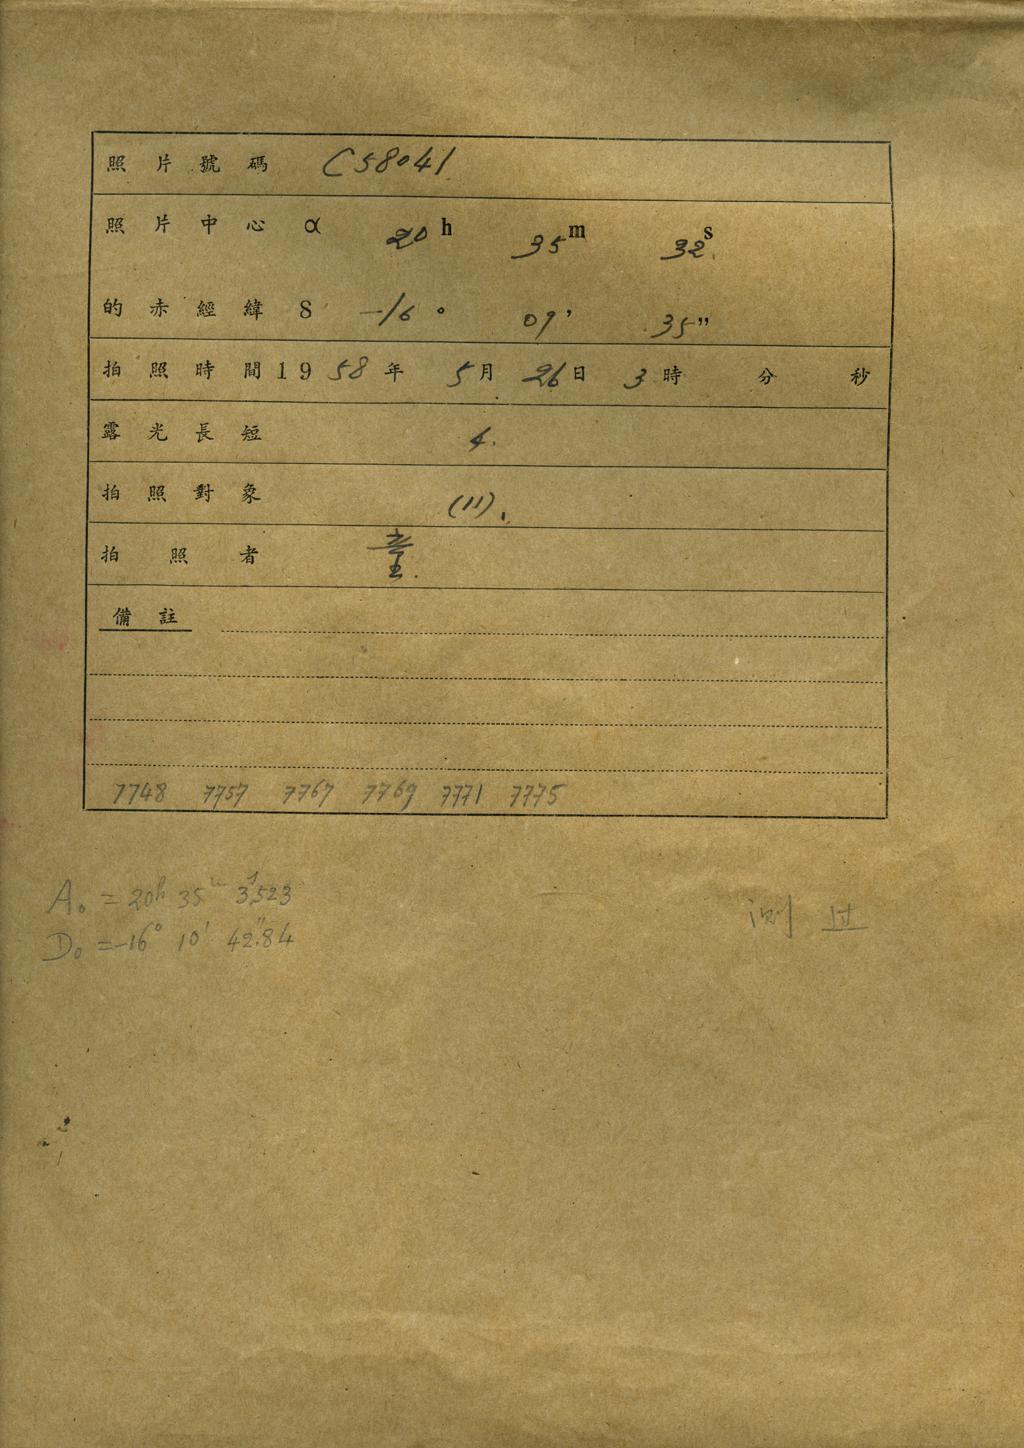 照片號碼 C58041
照片中心 α 20h 35m 32s
的赤經緯 δ -16° 09' 35"
拍照時間1958年 5月 26日 3時 分 秒
露光長短 4.
拍照對象 (11).
拍照者
備註
7748 7757 7767 7769 7771 7775
A₀ = 20h 35m 3ˢ.523
D₀ = -16° 10' 42".84
测过